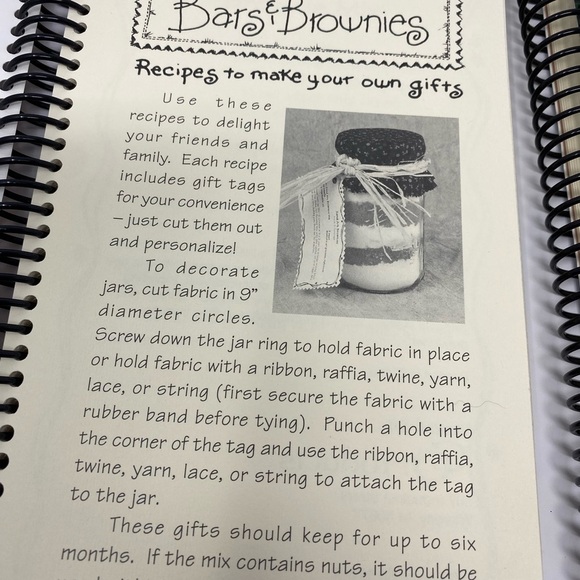 Bars & Brownies
Recipes to make your own gifts
Use these
recipes to delight
your friends and
family. Each recipe
includes gift tags
for your convenience
– just cut them out
and personalize!
To decorate
jars, cut fabric in 9"
diameter circles.
Screw down the jar ring to hold fabric in place
or hold fabric with a ribbon, raffia, twine, yarn,
lace, or string (first secure the fabric with a
rubber band before tying). Punch a hole into
the corner of the tag and use the ribbon, raffia,
twine, yarn, lace, or string to attach the tag
to the jar.
These gifts should keep for up to six
months. If the mix contains nuts, it should be